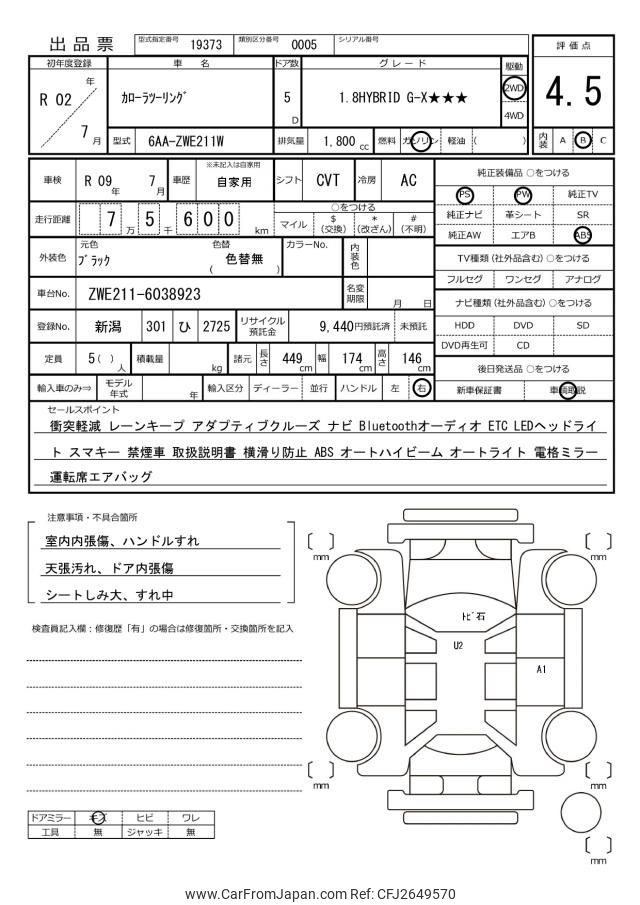 出品票 型式指定番号 19373 類別区分番号 0005 シリアル番号
評価点
4.5
内装 A B C
初年度登録 車名 ドア数 グレード 駆動
R 02 年 7 月
カローラツーリング 5 D 1.8HYBRID G-X★★★ 2WD 4WD
型式 6AA-ZWE211W 排気量 1,800 cc 燃料 ガソリン 軽油 ( )
※未記入は自家用
車検 R 09 年 7 月 車歴 自家用 シフト CVT 冷房 AC
走行距離 7 万 5 千 6 0 0 km
○をつける
マイル $(交換) *(改ざん) #(不明)
外装色 元色 ブラック 色替 ( 色替無 ) カラーNo. 内装色
車台No. ZWE211-6038923 名変期限 月 日
登録No. 新潟 301 ひ 2725 リサイクル預託金 9,440円預託済 未預託
定員 5( ) 人 積載量 kg 諸元 長さ 449 cm 幅 174 cm 高さ 146 cm
輸入車のみ⇒ モデル年式 年 輸入区分 ディーラー 並行 ハンドル 左 右
純正装備品 ○をつける
PS PW 純正TV
純正ナビ 革シート SR
純正AW エアB ABS
TV種類(社外品含む) ○をつける
フルセグ ワンセグ アナログ
ナビ種類(社外品含む) ○をつける
HDD DVD SD
DVD再生可 CD
後日発送品 ○をつける
新車保証書 車輌取説
セールスポイント
衝突軽減 レーンキープ アダプティブクルーズ ナビ Bluetoothオーディオ ETC LEDヘッドライ
ト スマキー 禁煙車 取扱説明書 横滑り防止 ABS オートハイビーム オートライト 電格ミラー
運転席エアバッグ
注意事項・不具合箇所
室内内張傷、ハンドルすれ
天張汚れ、ドア内張傷
シートしみ大、すれ中
検査員記入欄:修復歴「有」の場合は修復箇所・交換箇所を記入
〔 〕mm
〔 〕mm
トビ石
U2
A1
〔 〕mm
〔 〕mm
〔 〕mm
ドアミラー キズ ヒビ ワレ
工具 無 ジャッキ 無
www.CarFromJapan.com Ref: CFJ2649570